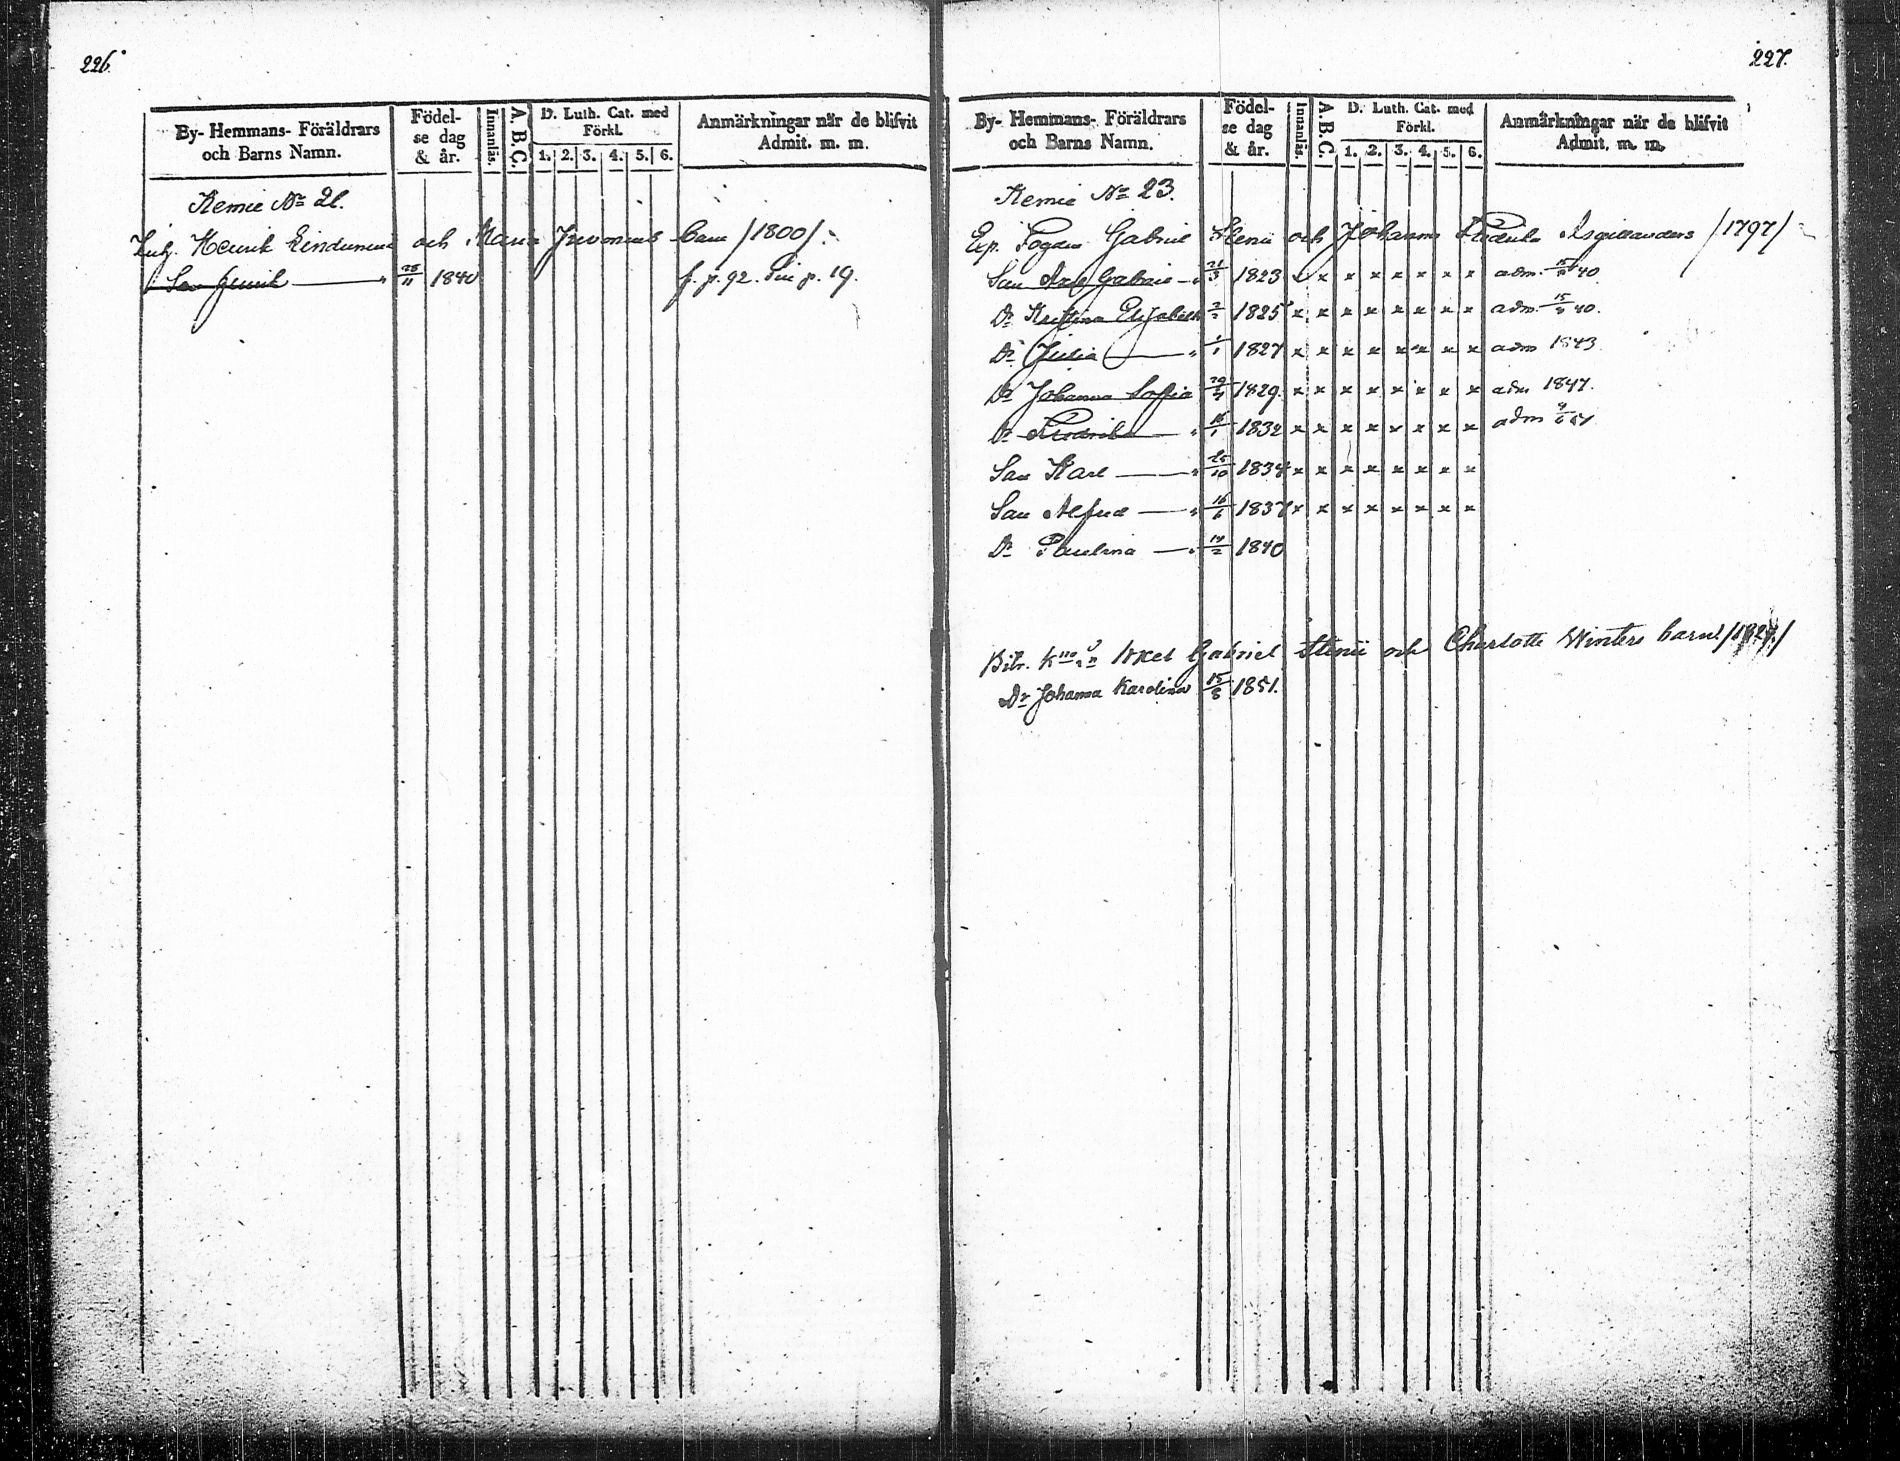 226.
By- Hemmans- Föräldrars och Barns Namn.
Födel-se dag & år.
Innanläs.
A. B. C.
D. Luth. Cat. med Förkl.
1. 2. 3. 4. 5. 6.
Anmärkningar när de blifvit Admit. m. m.
Kemie No 21.
Henrik Lindemund och Maria barn /1800/:
Son Henrik " 25/11 1840 f. p. 92. p. 19.
227.
By- Hemmans- Föräldrars och Barns Namn.
Födel-se dag & år.
Innanläs.
A. B. C.
D. Luth. Cat. med Förkl.
1. 2. 3. 4. 5. 6.
Anmärkningar när de blifvit Admit. m. m.
Kemie No 23.
Exp. Fogden Gabriel Stenii och Johanna Fredrika /1797/
Son Axel Gabriel " 21/3 1823 x x x x x x x adm. 40.
Dr Kristina Elisabeth 1825 x x x x x x x x adm. 40.
Dr Julia " 1827 x x x x x x x x adm 1843.
Dr Johanna Sofia 29/4 1829. x x x x x x x x adm 1847.
Dr Fredrika " 1832 x x x x x x x x adm
Son Karl " 25/10 1834 x x x x x x x x
Son Alfred " 16/6 1837 x x x x x x x x
Dr Paulina " 14/2 1840
Axel Gabriel Stenii och Charlotte Winters barn
Dr Johanna Karolina 15/8 1851.